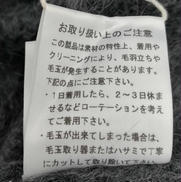 お取り扱い上のご注意
この製品は素材の特性上、着用や
クリーニングにより、毛羽立ちや
毛玉が発生することがあります。
下記の点にご注意下さい。
・1日着用したら、2〜3日休ま
せるなどローテーションを考え
てご着用下さい。
・毛玉が出来てしまった場合は、
毛玉取り器またはハサミで丁寧
にカットして取り除いて下さい。